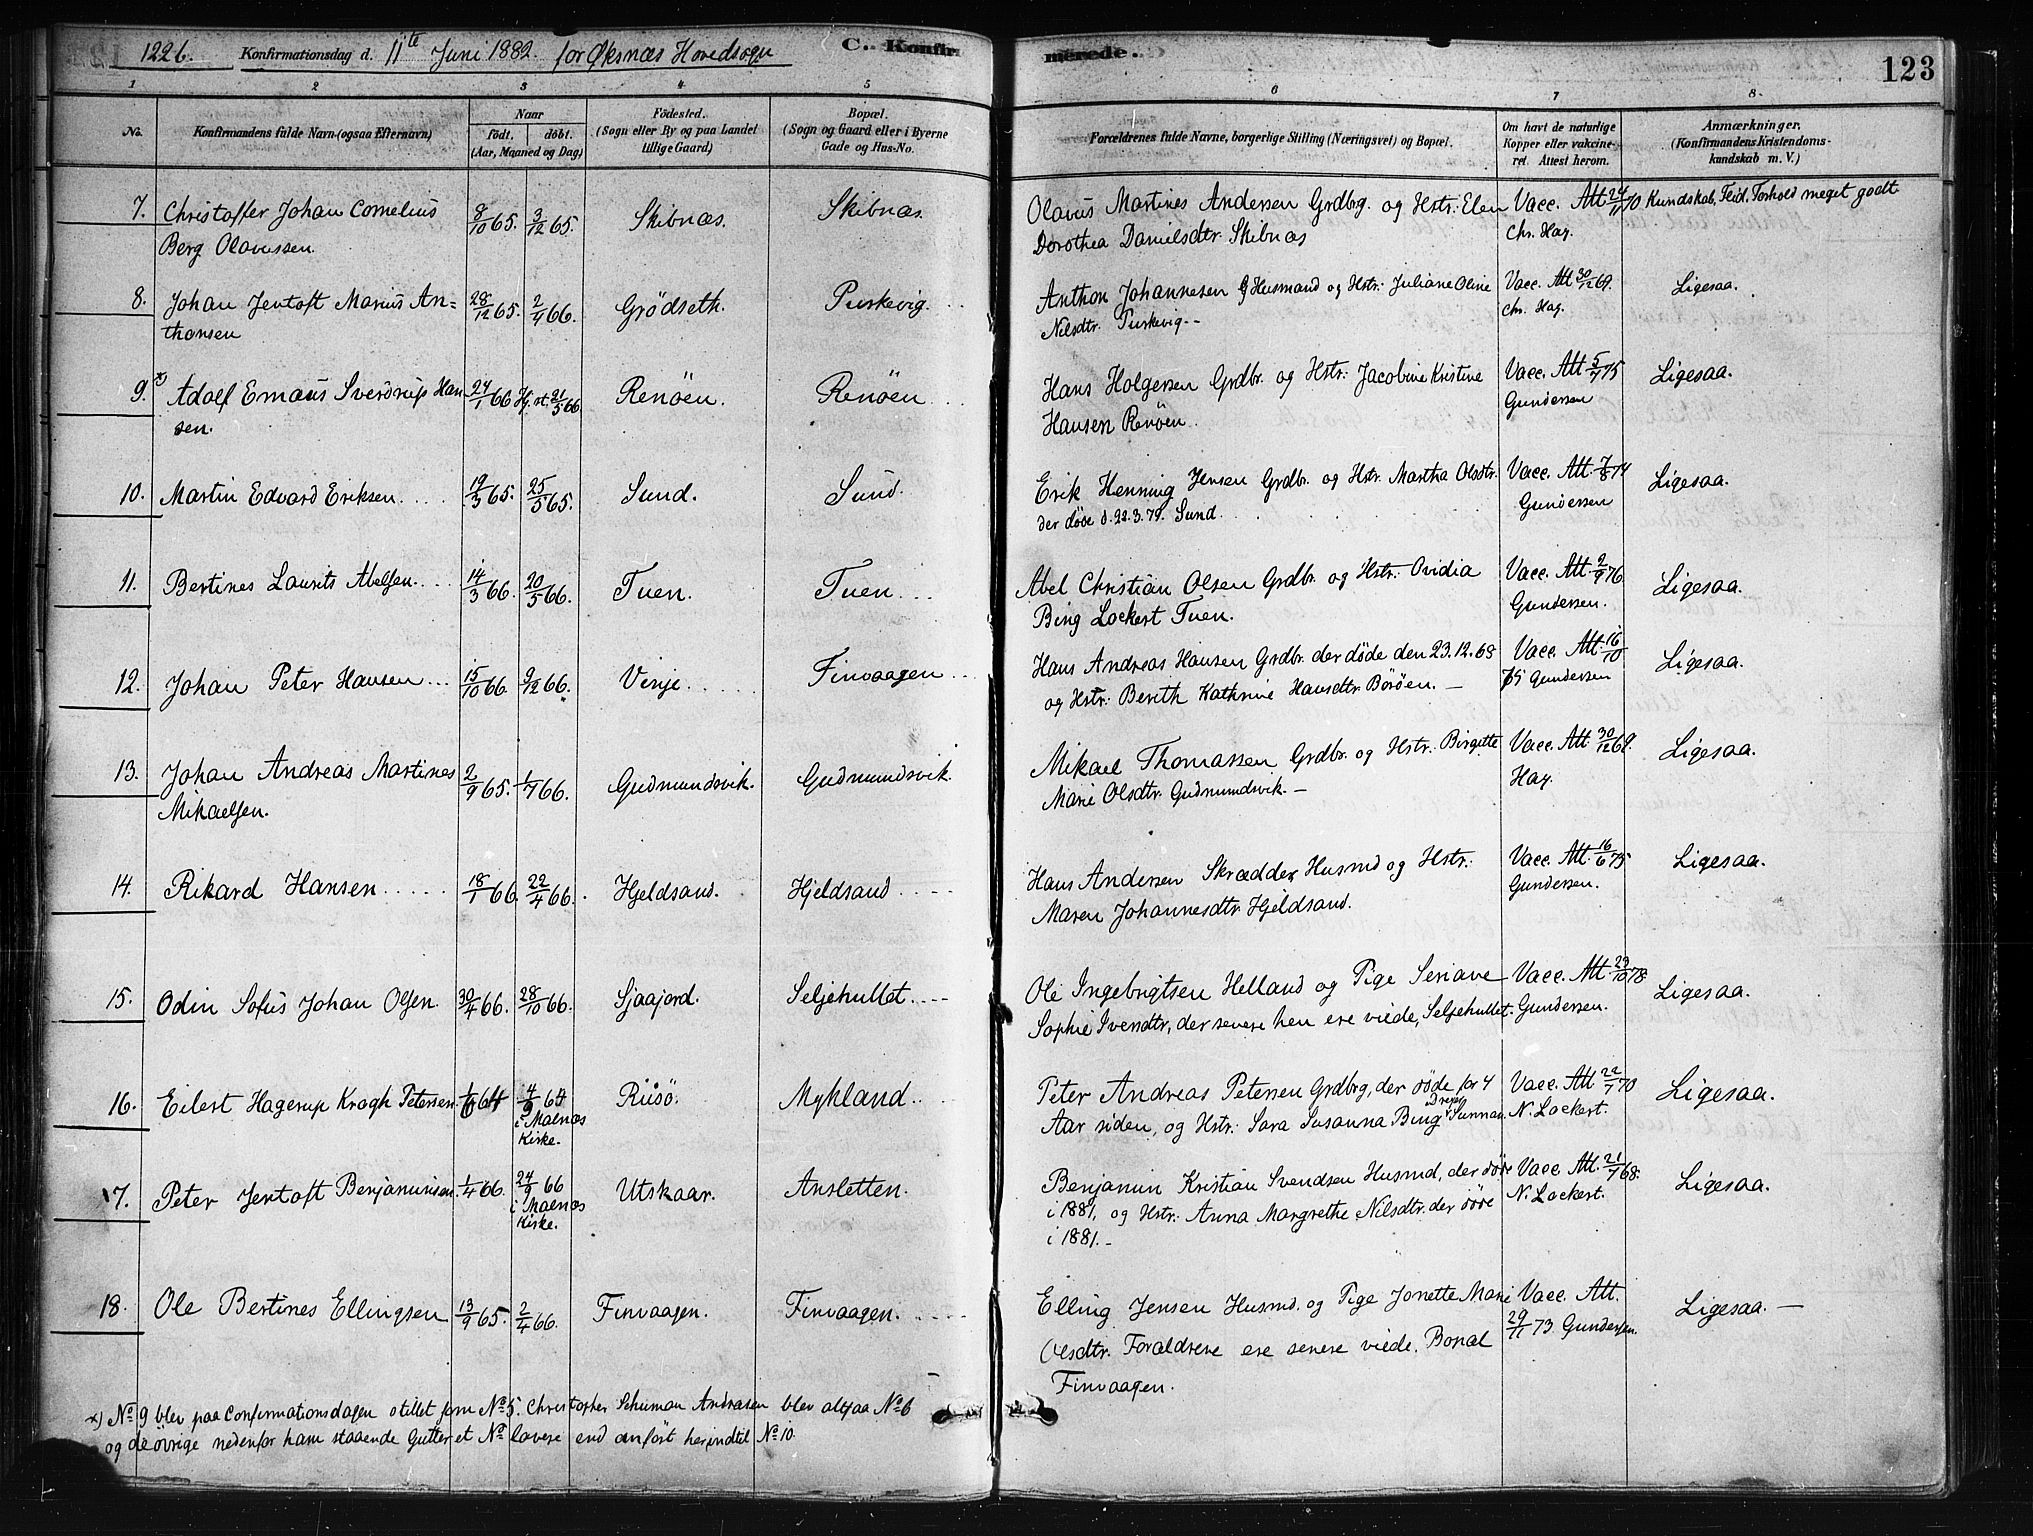 122b. Konfirmationsdag d. 11te Juni 1882. for Øksnæs Hovedsogn C. Konfirmerede. 123
1 2 3 4 5 6 7 8
No. Konfirmandens fulde Navn (ogsaa Efternavn) Naar født, døbt. (Aar, Maaned og Dag) Fødested. (Sogn eller By og paa Landet tillige Gaard) Bopæl. (Sogn og Gaard eller i Byerne Gade og Hus-No. Forældrenes fulde Navne, borgerlige Stilling (Næringsvei) og Bopæl. Om havt de naturlige Kopper eller vaccineret. Attest herom. Anmærkninger. (Konfirmandens Kristendomskundskab m. V.)
7. Christoffer Johan Cornelius 8/10 65. 3/12 65. Skibnæs. Skibnæs. Olavus Martines Andersen Grdbrg. og Hstr: Elen Vacc. Att 24/11 70 Kundskab, Flid, Forhold meget godt
Berg Olavussen. Dorothea Danielsdtr Skibnæs Chr. Hag.
8. Johan Jentoft Marius An= 28/12 65. 2/4 66. Grödseth. Purkevig. Anthon Johannesen Husmand og Hstr: Juliane Oline Vacc. Att 30/12 69. Ligesaa.
thonsen Nilsdtr. Purkevig. Chr. Hag.
9. x) Adolf Emaus Sverdrup Han 24/1 66 Hj. st. 21/5 66 Renöen. Renöen Hans Holgersen Grdbr. og Hstr: Jacobine Kristine Vacc. Att 5/7 75 Ligesaa.
sen. Hansen Renöen Gundersen
10. Martin Edvard Eriksen 19/3 65. 25/5 65. Sund. Sund. Erik Henning Jensen Grdbr. og Hstr. Martha Olsdtr. Vacc. Att 7/8 74 Ligesaa.
der døde d. 22.3.79. Sund. Gundersen
11. Bertines Laurits Abelsen. 14/3 66. 20/5 66. Tuen. Tuen Abel Christian Olsen Grdbr. og Hstr: Ovidia Vacc. Att. 2/9 76 Ligesaa.
Bing Lockert Tuen. Gundersen.
12. Johan Peter Hansen 15/10 66. 9/12 66. Vinje. Finvaagen Hans Andreas Hansen Grdbr. der døde den 23.12.68 Vacc. Att. 16/10 Ligesaa.
og Hstr: Berith Kathrine Hansdtr. Börøen. — 75 Gundersen
13. Johan Andreas Martines 2/9 65. 1/7 66. Gudmundsvik. Gudmundsvik. Mikael Thomassen Grdbr. og Hstr. Birgitte Vacc. Att 30/12 69. Ligesaa.
Mikaelsen. Marie Olsdtr. Gudmundsvik. — Hag.
14. Rikard Hansen 18/1 66. 22/4 66. Hjeldsand. Hjeldsand Hans Andersen Skrædder, Husmd og Hstr: Vacc. Att. 16/6 75 Ligesaa.
Maren Johannesdtr. Hjeldsand. Gundersen.
15. Odin Sofus Johan Olsen 30/4 66. 28/10 66. Sjaajord. Seljehullet. Ole Ingebrigtsen Helland og Pige Seriane Vacc. Att. 23/10 78 Ligesaa.
Sophie Ivensdtr, der senere hen ere viede, Seljehullet. Gundersen.
16. Eilert Hagerup Krogh Petersen 1/6 64 4/9 64 Riisö. Mykland. Peter Andreas Petersen Grdbrg, der døde for 4 Vacc. Att 22/7 70 Ligesaa.
i Malnæs Dreyer
Kirke. Aar siden, og Hstr: Sara Susanna Bing Sunnan. N. Lockert.
17. Peter Jentoft Benjaminsen. 1/4 66. 24/9 66 Utskaar. Ansletten. Benjamin Kristian Svendsen Husmd, der døde Vacc. Att. 21/7 68. Ligesaa.
i Malnæs i 1881, og Hstr: Anna Margrethe Nilsdtr. der døde N. Lockert.
Kirke. i 1881. —
18. Ole Bertines Ellingsen 13/9 65. 2/4 66. Finvaagen. Finvaagen. Elling Jensen Husmd. og Pige Jonette Marie Vacc. Att. Ligesaa. —
Olsdtr. Forældrene ere senere viede. Bopæl 29/11 73. Gundersen.
Finvaagen.
x) No 9 blev paa Confirmationsdagen stillet som No 5. Christopher Schuman Andrasen blev altsaa No 6
og de øvrige nedenfor ham staaende Gutter et No lavere end anført her indtil No 10.